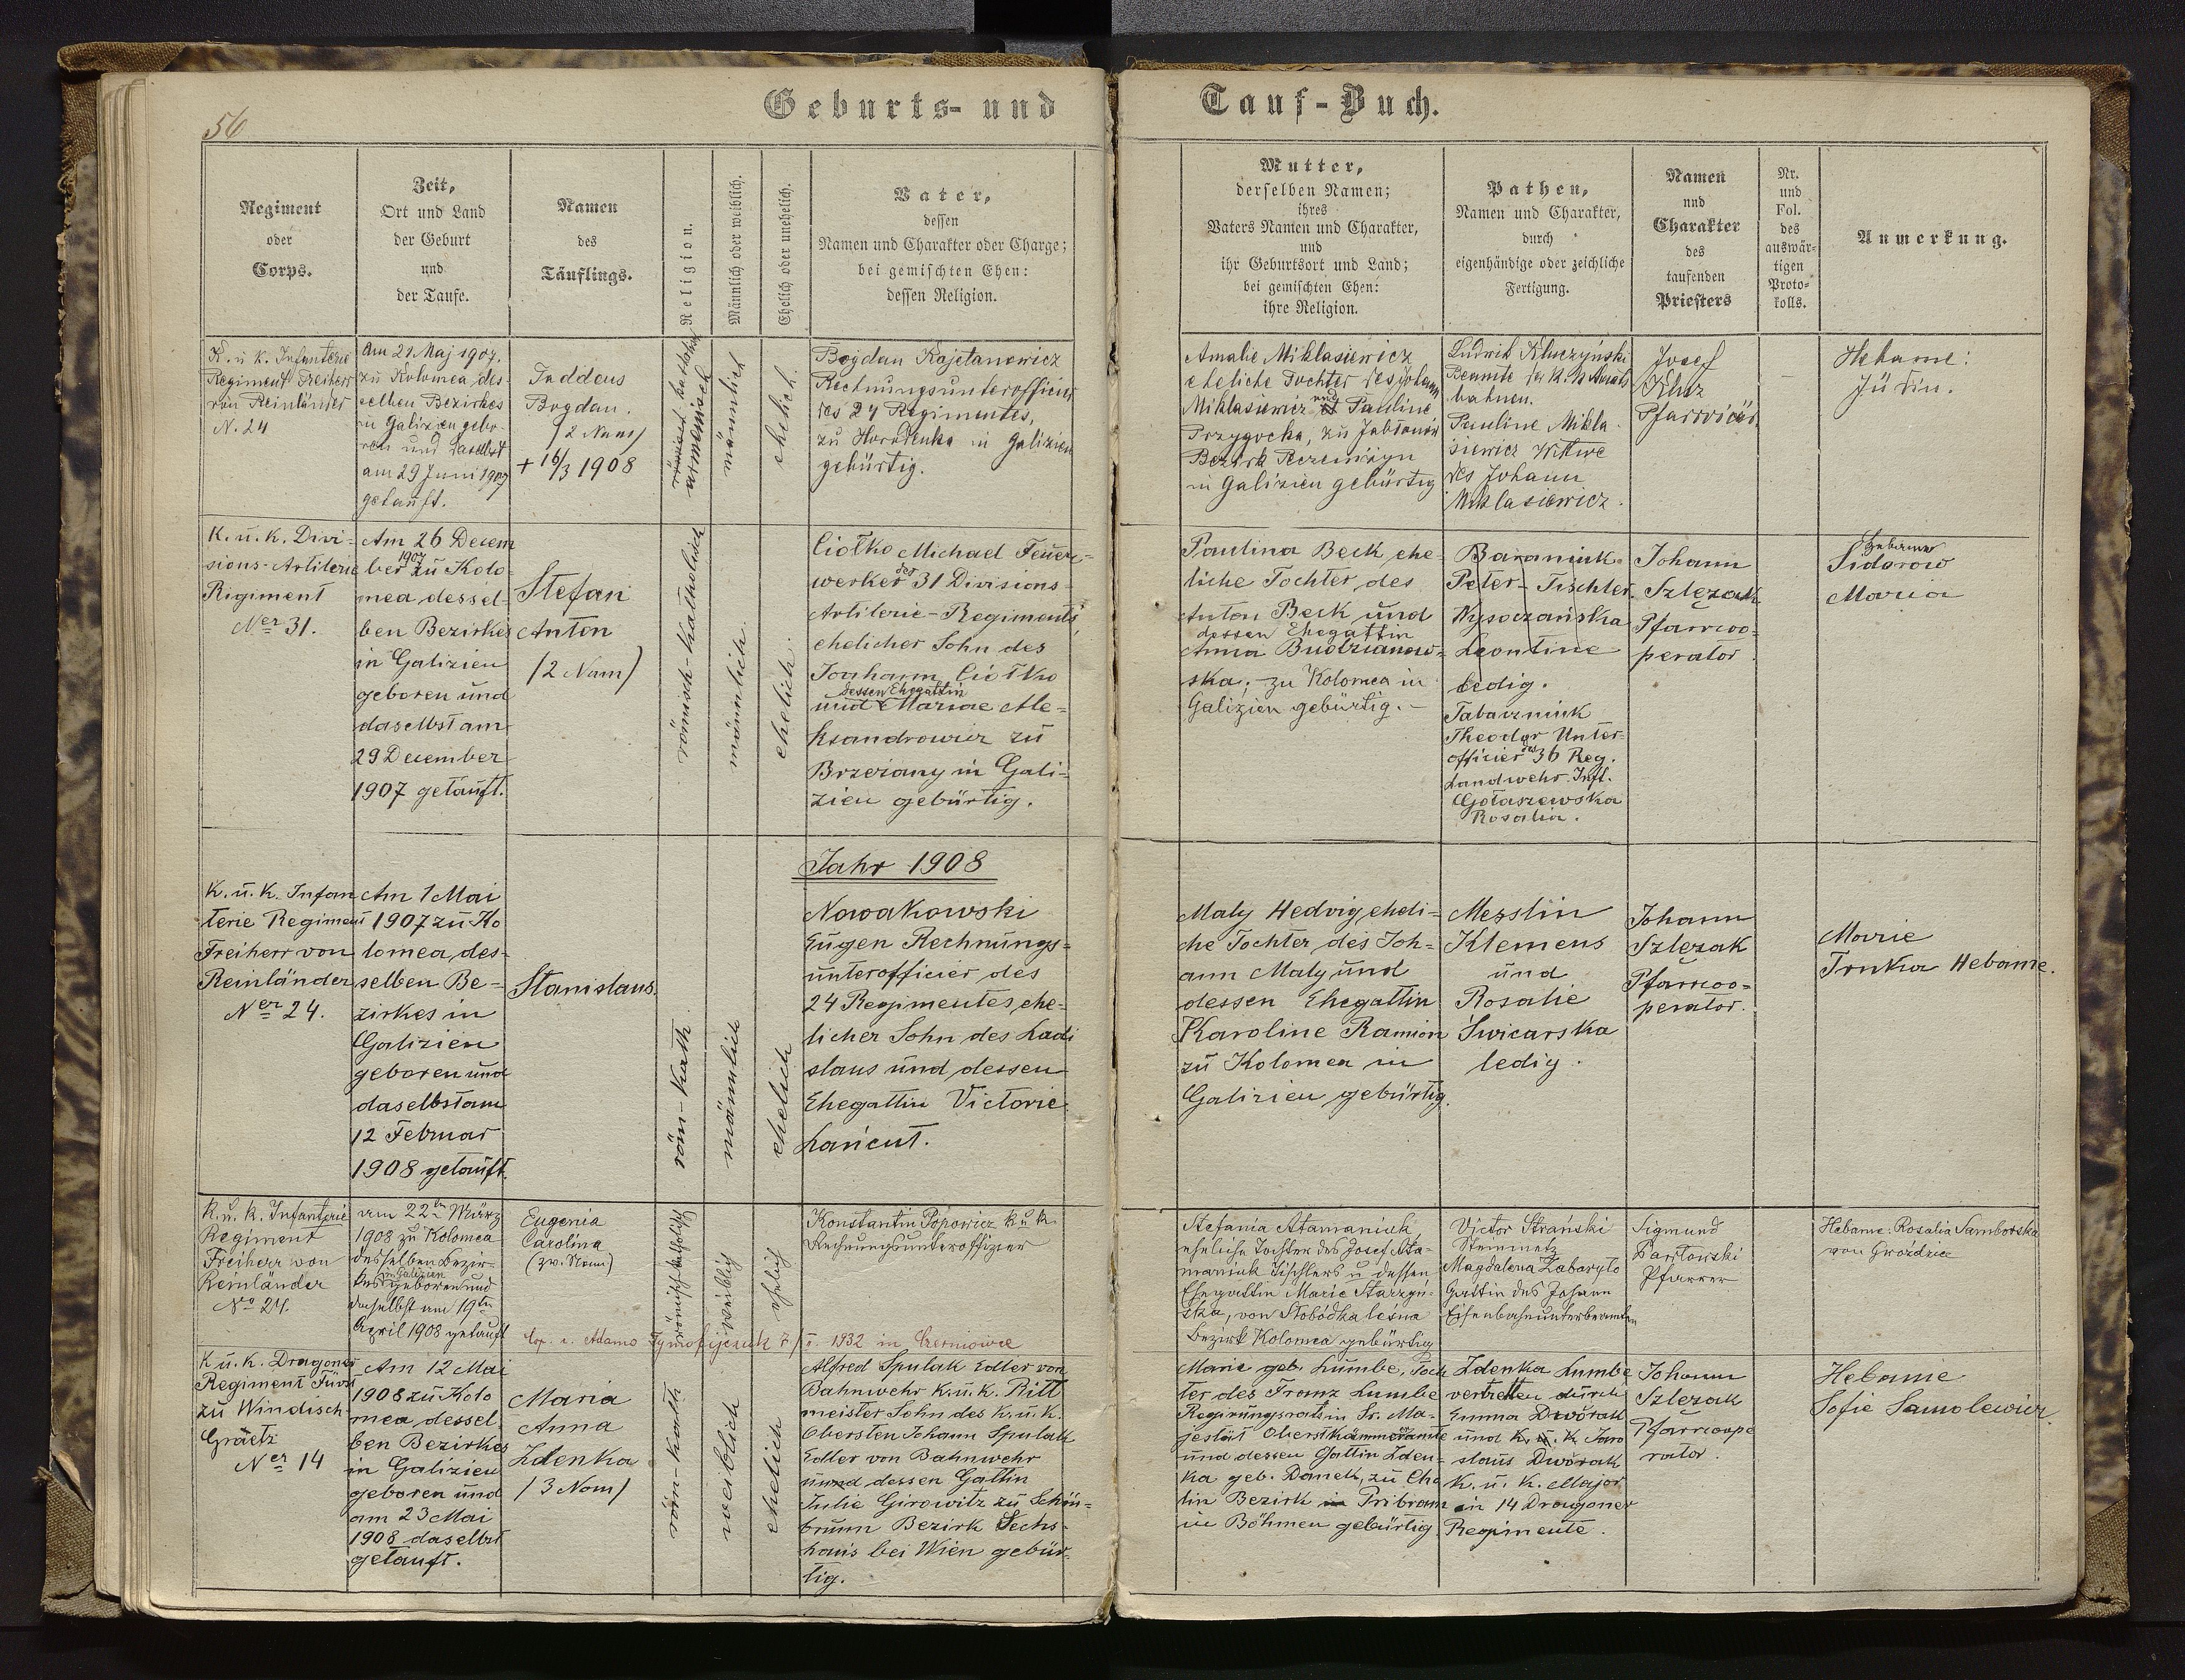 56
Geburts- und
Tauf-Buch.
Regiment
oder
Corps.
Zeit,
Ort und Land
der Geburt
und
der Taufe.
Namen
des
Täuflings.
Religion.
Männlich oder weiblich.
Ehelich oder unehelich.
Vater,
dessen
Namen und Charakter oder Charge;
bei gemischten Ehen:
dessen Religion.
Mutter,
derselben Namen;
ihres
Vaters Namen und Charakter,
und
ihr Geburtsort und Land;
bei gemischten Ehen:
ihre Religion.
Pathen,
Namen und Charakter,
durch
eigenhändige oder zeichliche
Fertigung.
Namen
und
Charakter
des
taufenden
Priesters
Nr.
und
Fol.
des
auswär-
tigen
Proto-
kolls.
Anmerkung.
K. u k. Infanterie
Regiment Freiherr
von Reinländer
N. 24
Am 21 Maj 1907.
zu Kolomea des-
selben Bezirkes
in Galizien gebo-
ren und daselbst
am 29 Juni 1907
getauft.
Taddeus
Bogdan.
/2 Nam/
+ 16/3 1908
römisch katholisch
armenisch
männlich
ehelich.
Bogdan Kajetanowicz
Rechnungsunterofficier
des 24 Regimentes,
zu Horodenka in Galizien
gebürtig.
Amalie Miklasiewicz
eheliche Tochter des Johann
Miklasiewicz und Pauline
Przygocka, zu Jabłonow
Bezirk Peczeniżyn
in Galizien gebürtig
Ludwik Kluczyński
Beamte der K. k Staats
bahnen.
Pauline Mikla-
siewicz Witwe
des Johann
Miklasiewicz.
Josef
Kluz
Pfarrvicär
Hebame:
Jüdin.
K. u. k. Divi-
sions-Artilerie
Rigiment
Ner 31.
Am 26 Decem
1907
ber zu Kolo-
mea dessel-
ben Bezirkes
in Galizien
geboren und
daselbst am
29 December
1907 getauft.
Stefan
Anton
/2 Nam/
römisch-katholisch
männlich.
ehelich.
Ciołko Michael Feuer-
werker des 31 Divisions-
Artilerie-Regiments,
ehelicher Sohn des
Joahann Ciołko
dessen Ehegattin
und Mariae Ale-
ksandrowicz zu
Brzeżany in Gali-
zien gebürtig.
Paulina Beck ehe-
liche Tochter des
Anton Beck und
dessen Ehegattin
Anna Budzianow-
ska; zu Kolomea in
Galizien gebürtig.-
Baraniuk
Peter-Tischler
Wysoczańska
Leontine
ledig.
Tabaczniuk
Theodor Unter-
officier des 36 Reg.
Landwehr. Inft.
Gołaszewska
Rosalia.
Johann
Szlęzak
Pfarrcoo-
perator
Hebame
Sidorow
Maria
Jahr 1908
K. u. k. Infan
terie Regiment
Freiherr von
Reinländer
Ner 24.
Am 1 Mai
1907 zu Ko
lomea, des-
selben Be-
zirkes in
Galizien
geboren und
daselbst am
12 Februar
1908 getauft.
Stanislaus.
röm-kath.
männlich
ehelich
Nowakowski
Eugen Rechnungs-
unterofficier des
24 Regimentes, ehe-
licher Sohn des Ladi
slaus und dessen
Ehegattin Victorie
Łańcut.
Maly Hedvig eheli-
che Tochter des Joh-
ann Maly und
dessen Ehegattin
Karoline Ramion
zu Kolomea in
Galizien gebürtig.
Messlin
Klemens
und
Rosalie
Świcarska
ledig.
Johann
Szlęzak
Pfarrcoo-
perator.
Marie
Trnka Hebame.
K. u. k. Infanterie
Regiment
Freiherr von
Reinländer
No 24.
am 22ten März
1908 zu Kolomea
desselben Bezir-
in Galizien
kes geboren und
daselbst am 19ten
April 1908 getauft
Eugenia
Carolina
(zw. Nam)
römisch katholisch
weiblich
ehelich
Konstantin Popowicz k. u. k.
Rechnungsunteroffizier
Stefania Atamaniuk
eheliche Tochter des Josef Ata-
maniuk Tischlers u dessen
Ehegattin Marie Starzyń-
ska, von Słobódka leśna
Bezirk Kolomea gebürtig
Victor Strański
Steinmetz
Magdalena Zabaryło
Gattin des Johann
Eisenbahnunterbeamten
Sigmund
Pfarrer
Hebame: Rosalia Samborska
von Grożdzie
Cop. c. Adamo Tymofijczuk 7/V. 1932 in Czerniowce
K u. k. Dragoner
Regiment Fürst
zu Windisch-
Graetz
Ner 14
Am 12 Mai
1908 zu Kolo
mea dessel
ben Bezirkes
in Galizien
geboren und
am 23 Mai
1908 daselbst
getauft.
Maria
Anna
Zdenka
/3 Nam/
röm-kath
weiblich
ehelich
Alfred Spulak Edler von
Bahnwehr K. u. k. Ritt
meister Sohn des K. u. k.
Obersten Johann Spulak
Edler von Bahnwehr
und dessen Gattin
Julie Girowitz zu Schön-
brunn Bezirk Sechs-
haus bei Wien gebür-
tig.
Marie geb. Lumbe, Toch
ter des Franz Lumbe
Regirungsrats in Sr. Ma-
jestät Oberstkämmeramte
und dessen Gattin Zden-
ka geb. Danek, zu Cho
tin Bezirk in Pribram
in Böhmen gebürtig.
Zdenka Lumbe
vertretten durch
Emma Dwořak
und K. u. k. Jaro
slaus Dwořak
K. u. k. Major
in 14 Dragoner
Regimente.
Johann
Szlęzak
Pfarrcoope
rator.
Hebame
Sofie Samolewicz.